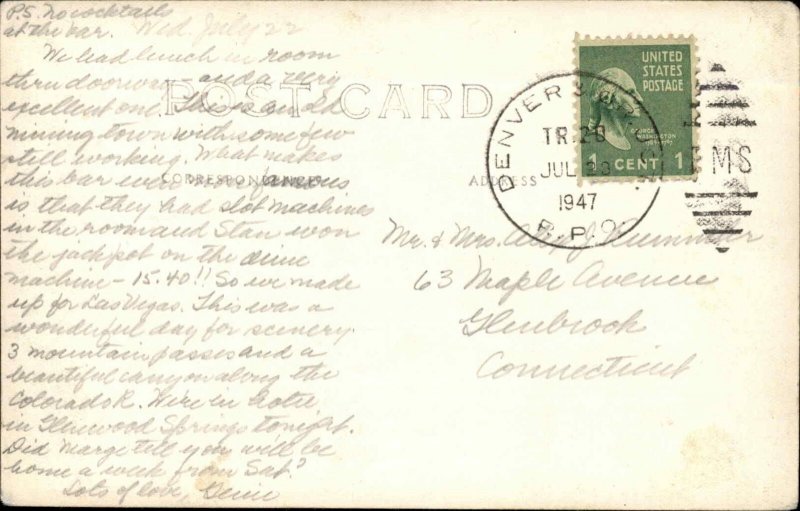 P.S. No cocktails
at the bar. Wed. July 22
We had lunch in room
thru doorway and a very
excellent one. This is an old
mining town with some few
still working. What makes
this bar more famous
is that they had slot machines
in the room and Stan won
the jackpot on the dime
machine - 15.40!! So we made
up for Las Vegas. This was a
wonderful day for scenery
3 mountain passes and a
beautiful canyon along the
Colorado R. We're in hotel
in Glenwood Springs tonight.
Did Marge tell you we'll be
home a week from Sat?
Lots of love,
POST CARD
CORRESPONDENCE
ADDRESS
UNITED
STATES
POSTAGE
GEORGE
WASHINGTON
1 CENT 1
DENVER
TR.20
JUL 23
1947
R.P.O.
RMS
Mr. & Mrs.
63 Maple Avenue
Glenbrook
Connecticut